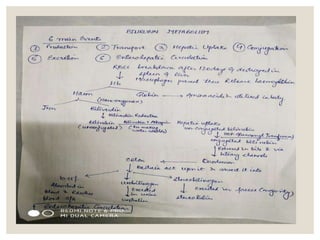 BILIRUBIN METABOLISM
6 main Events
① Production ② Transport ③ Hepatic Uptake ④ Conjugation
⑤ Excretion ⑥ Enterohepatic Circulation
RBCs breakdown after 120 days & destroyed in
spleen & liver
Macrophages present there Release haemoglobin
Hb
Haem Globin → Amino acids → utilised in body
Iron Biliverdin
Biliverdin Reductase
Bilirubin Bilirubin + Albumin Hepatic uptake
(unconjugated) (to make water soluble) non conjugated bilirubin
UDP Glucuronyl Transferase
conjugated bilirubin
Released in bile & via
biliary channels
Colon Duodenum
Bacteria act upon it & convert it into
Urobilinogen Stercobilinogen
Absorbed in excreted excreted in faeces (majority)
blood & Reaches in urine
urobilin Stercobilin
Enterohepatic Circulation
REDMI NOTE 6 PRO
MI DUAL CAMERA